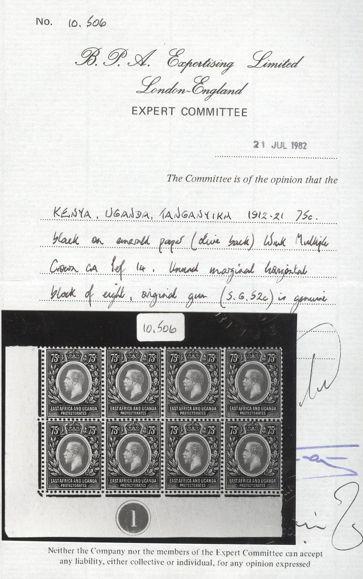 No. 10.506
B. P. A. Expertising Limited
London-England
EXPERT COMMITTEE
21 JUL 1982
The Committee is of the opinion that the
KENYA, UGANDA, TANGANYIKA 1912-21 75c.
black on emerald paper (olive back) Wmk Multiple
Crown CA of 14. Unused marginal horizontal
block of eight, original gum (S.G. 52c) is genuine
10.506
75c 75c 75c 75c 75c 75c 75c 75c
EAST AFRICA AND UGANDA EAST AFRICA AND UGANDA EAST AFRICA AND UGANDA EAST AFRICA AND UGANDA
PROTECTORATES PROTECTORATES PROTECTORATES PROTECTORATES
75c 75c 75c 75c 75c 75c 75c 75c
EAST AFRICA AND UGANDA EAST AFRICA AND UGANDA EAST AFRICA AND UGANDA EAST AFRICA AND UGANDA
PROTECTORATES PROTECTORATES PROTECTORATES PROTECTORATES
1
Neither the Company nor the members of the Expert Committee can accept
any liability, either collective or individual, for any opinion expressed